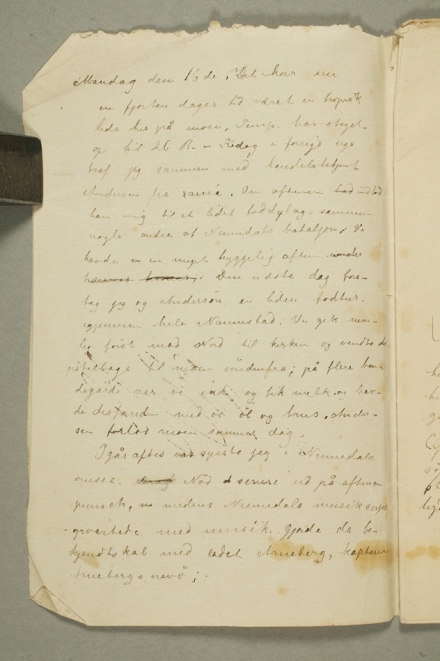 Mandag den 16de. Det har nu
en fjorten dages tid været en tropisk
hede her på moen. Temp. har steget
op til 26 R. Fredag i forrige uge
traf jeg sammen med handelsbetjent
Andersen fra Om aftenen indbød
han mig til et lidet toddylag sammen
nogle andre af Numedals bataljon. Vi
havde en meget hyggelig aften
Den næste dag fore-
tog jeg og Andersen en liden fodtur
igjennem hele Vi gik nem-
lig først mod Nord til kirken og vendte så
tilbage søndenfra; på flere bon-
degårde var vi inde og fik melk og hav-
de med os øl og brus. Ander-
sen forlod moen samme dag.
Igår aftes spiste jeg i Numedals
messe. Nød senere ud på aftenen
punsch, medens Numedals musikkorps
opvartede med musik. Gjorde da be-
kjendtskab med kadet Arneberg, kaptein
Arnebergs nevø;